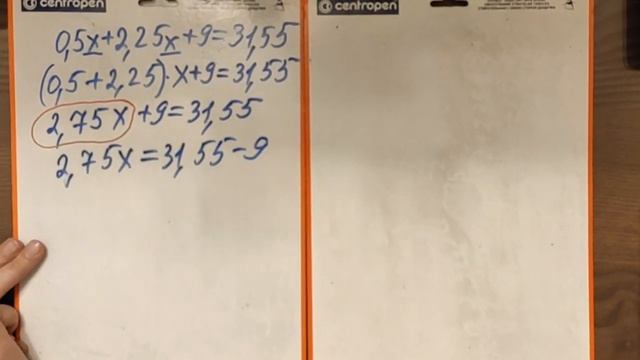 centropen
centropen
0,5x+2,25x+9=31,55
(0,5+2,25)·x+9=31,55
2,75x+9=31,55
2,75x=31,55-9